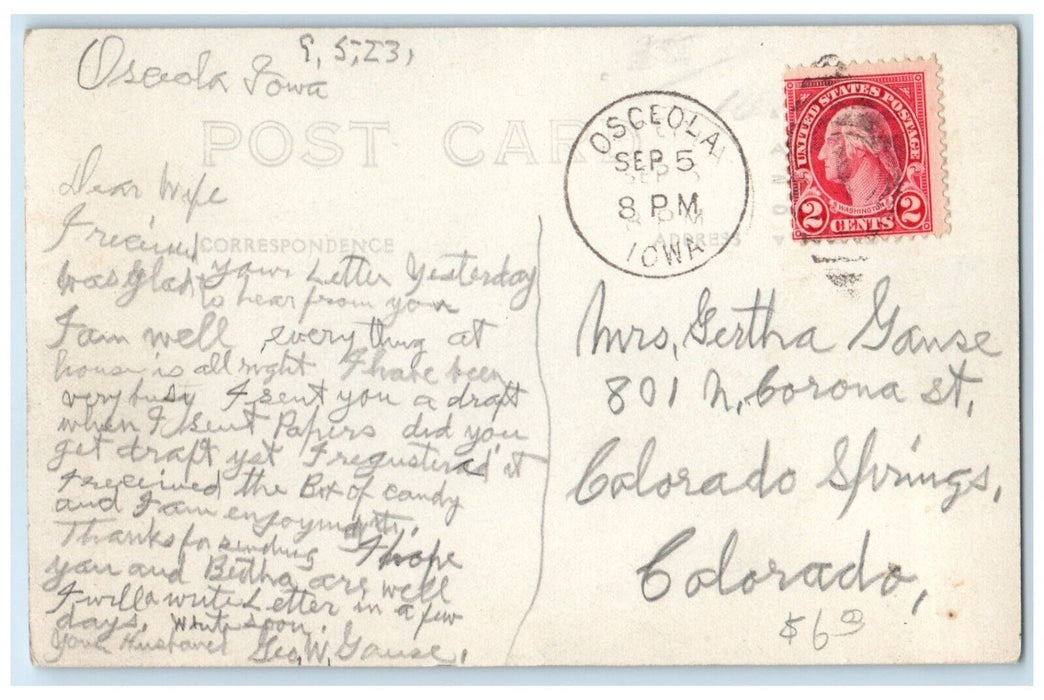 Osceola Iowa
9, 5, 23,
POST CARD
Dear Wife
CORRESPONDENCE
I recieved your Letter Yesterday
was glad to hear from you
I am well everything at
house is all right I have been
very busy I sent you a draft
when I sent Papers did you
get draft yet I regustered it
I received the Box of candy
and I am enjoying it,
Thanks for sending I hope
you and Bertha are well
I will write Letter in a few
days. Write soon.
Your Husband Geo, W, Gause,
OSCEOLA
SEP 5
8 PM
IOWA
ADDRESS
UNITED STATES POSTAGE
WASHINGTON
2 CENTS 2
Mrs, Gertha Gause
801 N, Corona st,
Colorado Springs,
Colorado,